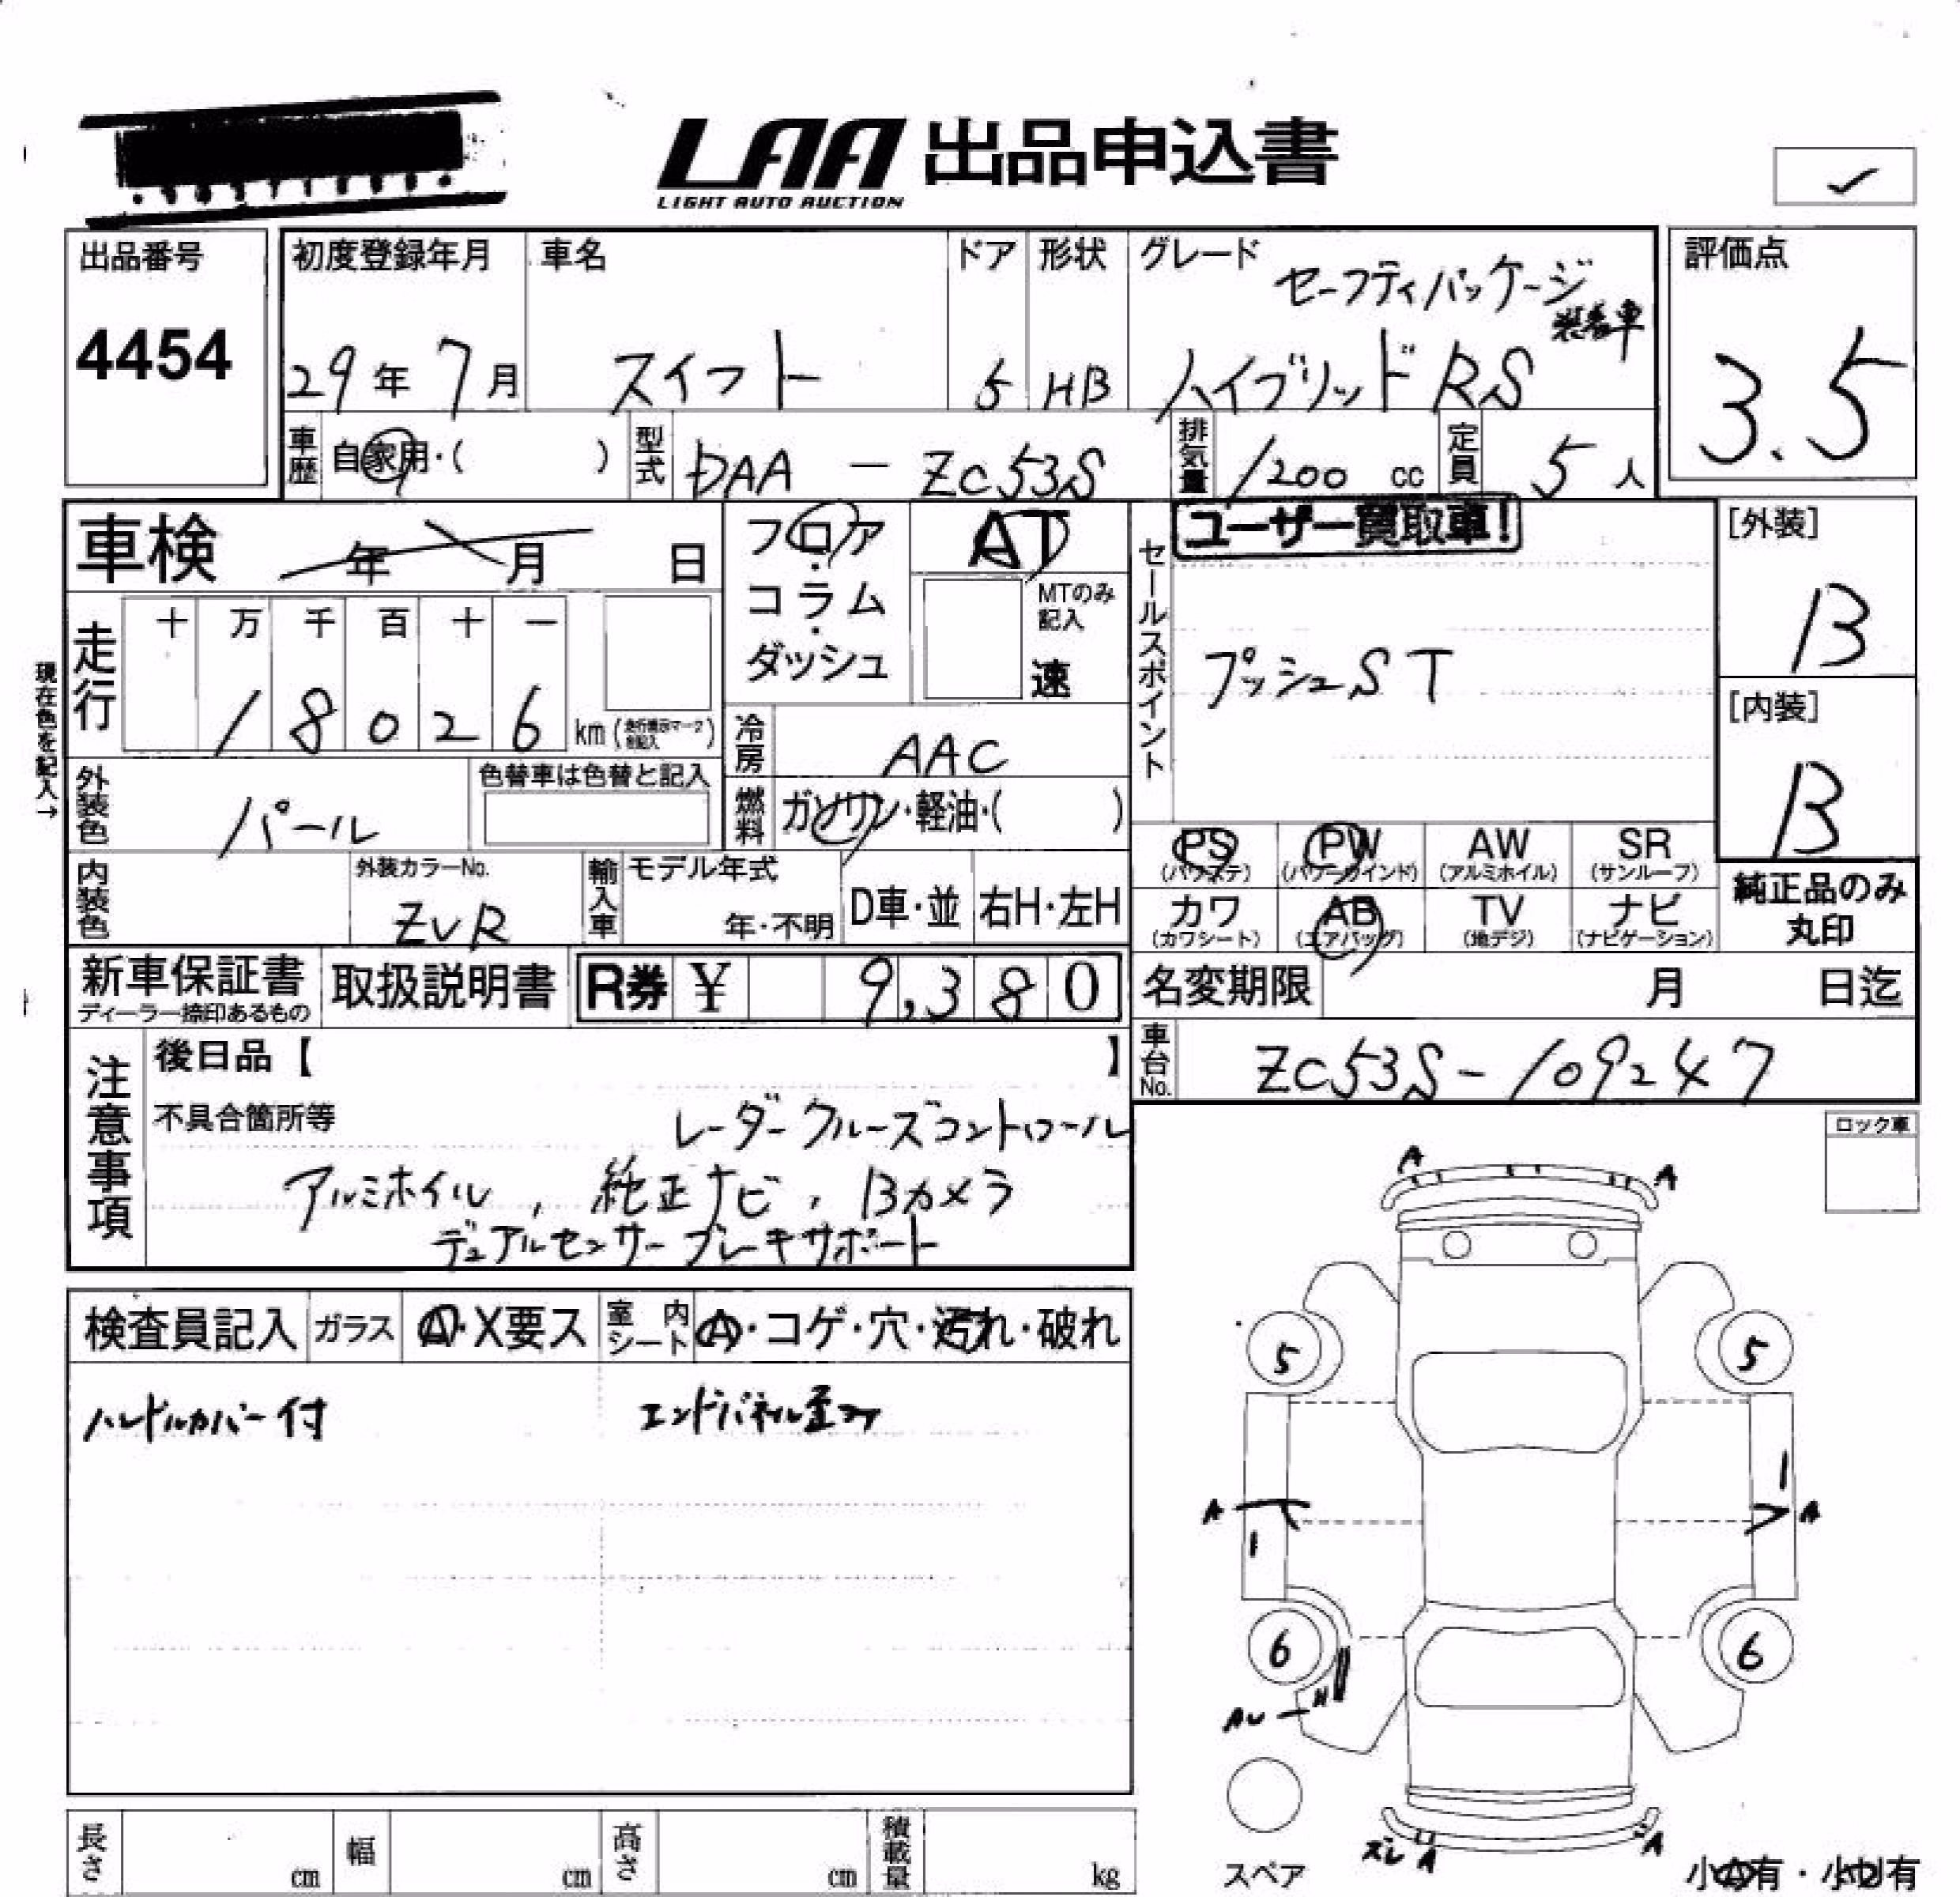 LAA 出品申込書
LIGHT AUTO AUCTION
出品番号
4454
初度登録年月
29年 7月
車名
スイフト
ドア
5
形状
HB
グレード
セーフティパッケージ
装着車
ハイブリッド RS
評価点
3.5
車歴
自家用・( )
型式
DAA - ZC53S
排気量
1200 cc
定員
5 人
車検 年 月 日
フロア
コラム
ダッシュ
AT
MTのみ
記入
速
セールスポイント
ユーザー買取車!
プッシュST
[外装]
B
[内装]
B
現在色を記入→
走行
十 万 千 百 十 一
1 8 0 2 6 km
冷房
AAC
外装色
パール
色替車は色替と記入
燃料
ガソリン・軽油・( )
PS
(パワステ)
PW
(パワーウインド)
AW
(アルミホイル)
SR
(サンルーフ)
カワ
(カワシート)
AB
(エアバッグ)
TV
(地デジ)
ナビ
(ナビゲーション)
純正品のみ
丸印
内装色
外装カラーNo.
ZVR
輸入車
モデル年式
年・不明
D車・並
右H・左H
新車保証書
ディーラー捺印あるもの
取扱説明書
R券 ¥ 9,380
名変期限 月 日迄
車台No.
ZC53S-109247
注意事項
後日品【 】
不具合箇所等
レーダークルーズコントロール
アルミホイル, 純正ナビ, Bカメラ
デュアルセンサーブレーキサポート
ロック車
検査員記入
ガラス
A・X要ス
室内シート
A・コゲ・穴・汚れ・破れ
ハンドルカバー付
エンドパネル歪み
A
A
5
5
A
1
1
A
6
6
AU
スペア
ズレ
A
A
小A有・小U有
長さ cm
幅 cm
高さ cm
積載量 kg